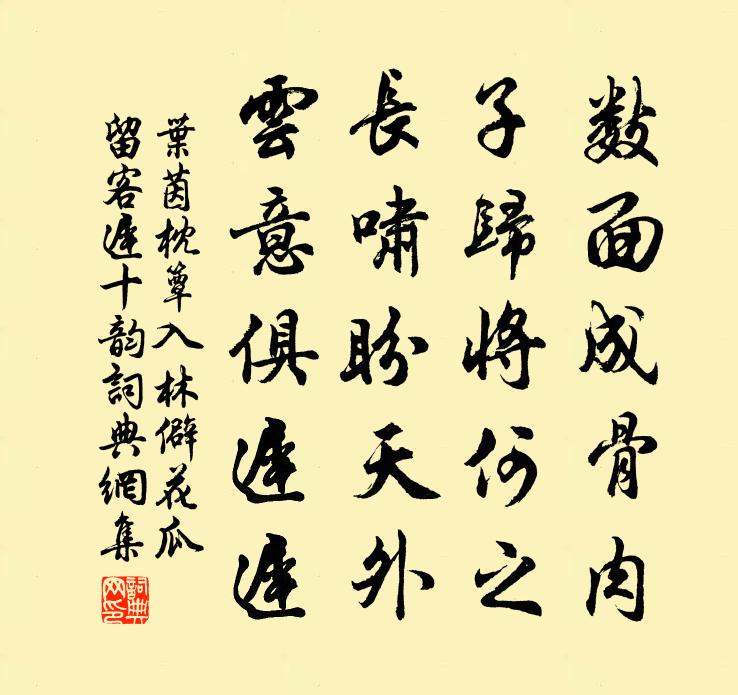 数面成骨肉
子歸將何之
長嘯盼天外
雲意俱遲遲
葉茵枕簟入林僻花瓜
留客遲十韵詞典網集
詞典
网印